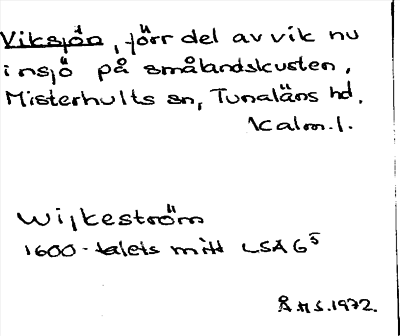 Viksjön, förr del av vik nu
insjö på smålandskusten,
Misterhults sn, Tunaläns hd.
Kalm.l.
Wijkeström
1600-talets mitt LSA G5
Å.H S.1972.